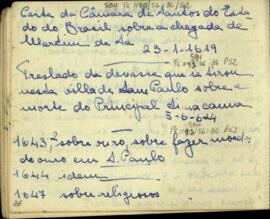 Carta da Câmara de Santos do Esta
do do Brasil sobre a chegada de
Martim de Sá
23-1-1619
Treslado da devassa que se tirou
nesta villa de Sam Paulo sobre a
morte do Principal
5-6-624
1643, sobre ouro, sobre fazer moeda
de ouro em S. Paulo
1644 idem
1647 sobre religiosos